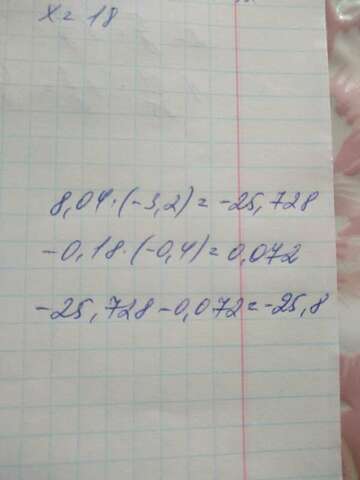 x = 18
8,04·(-3,2)=-25,728
-0,18·(-0,4)=0,072
-25,728-0,072=-25,8